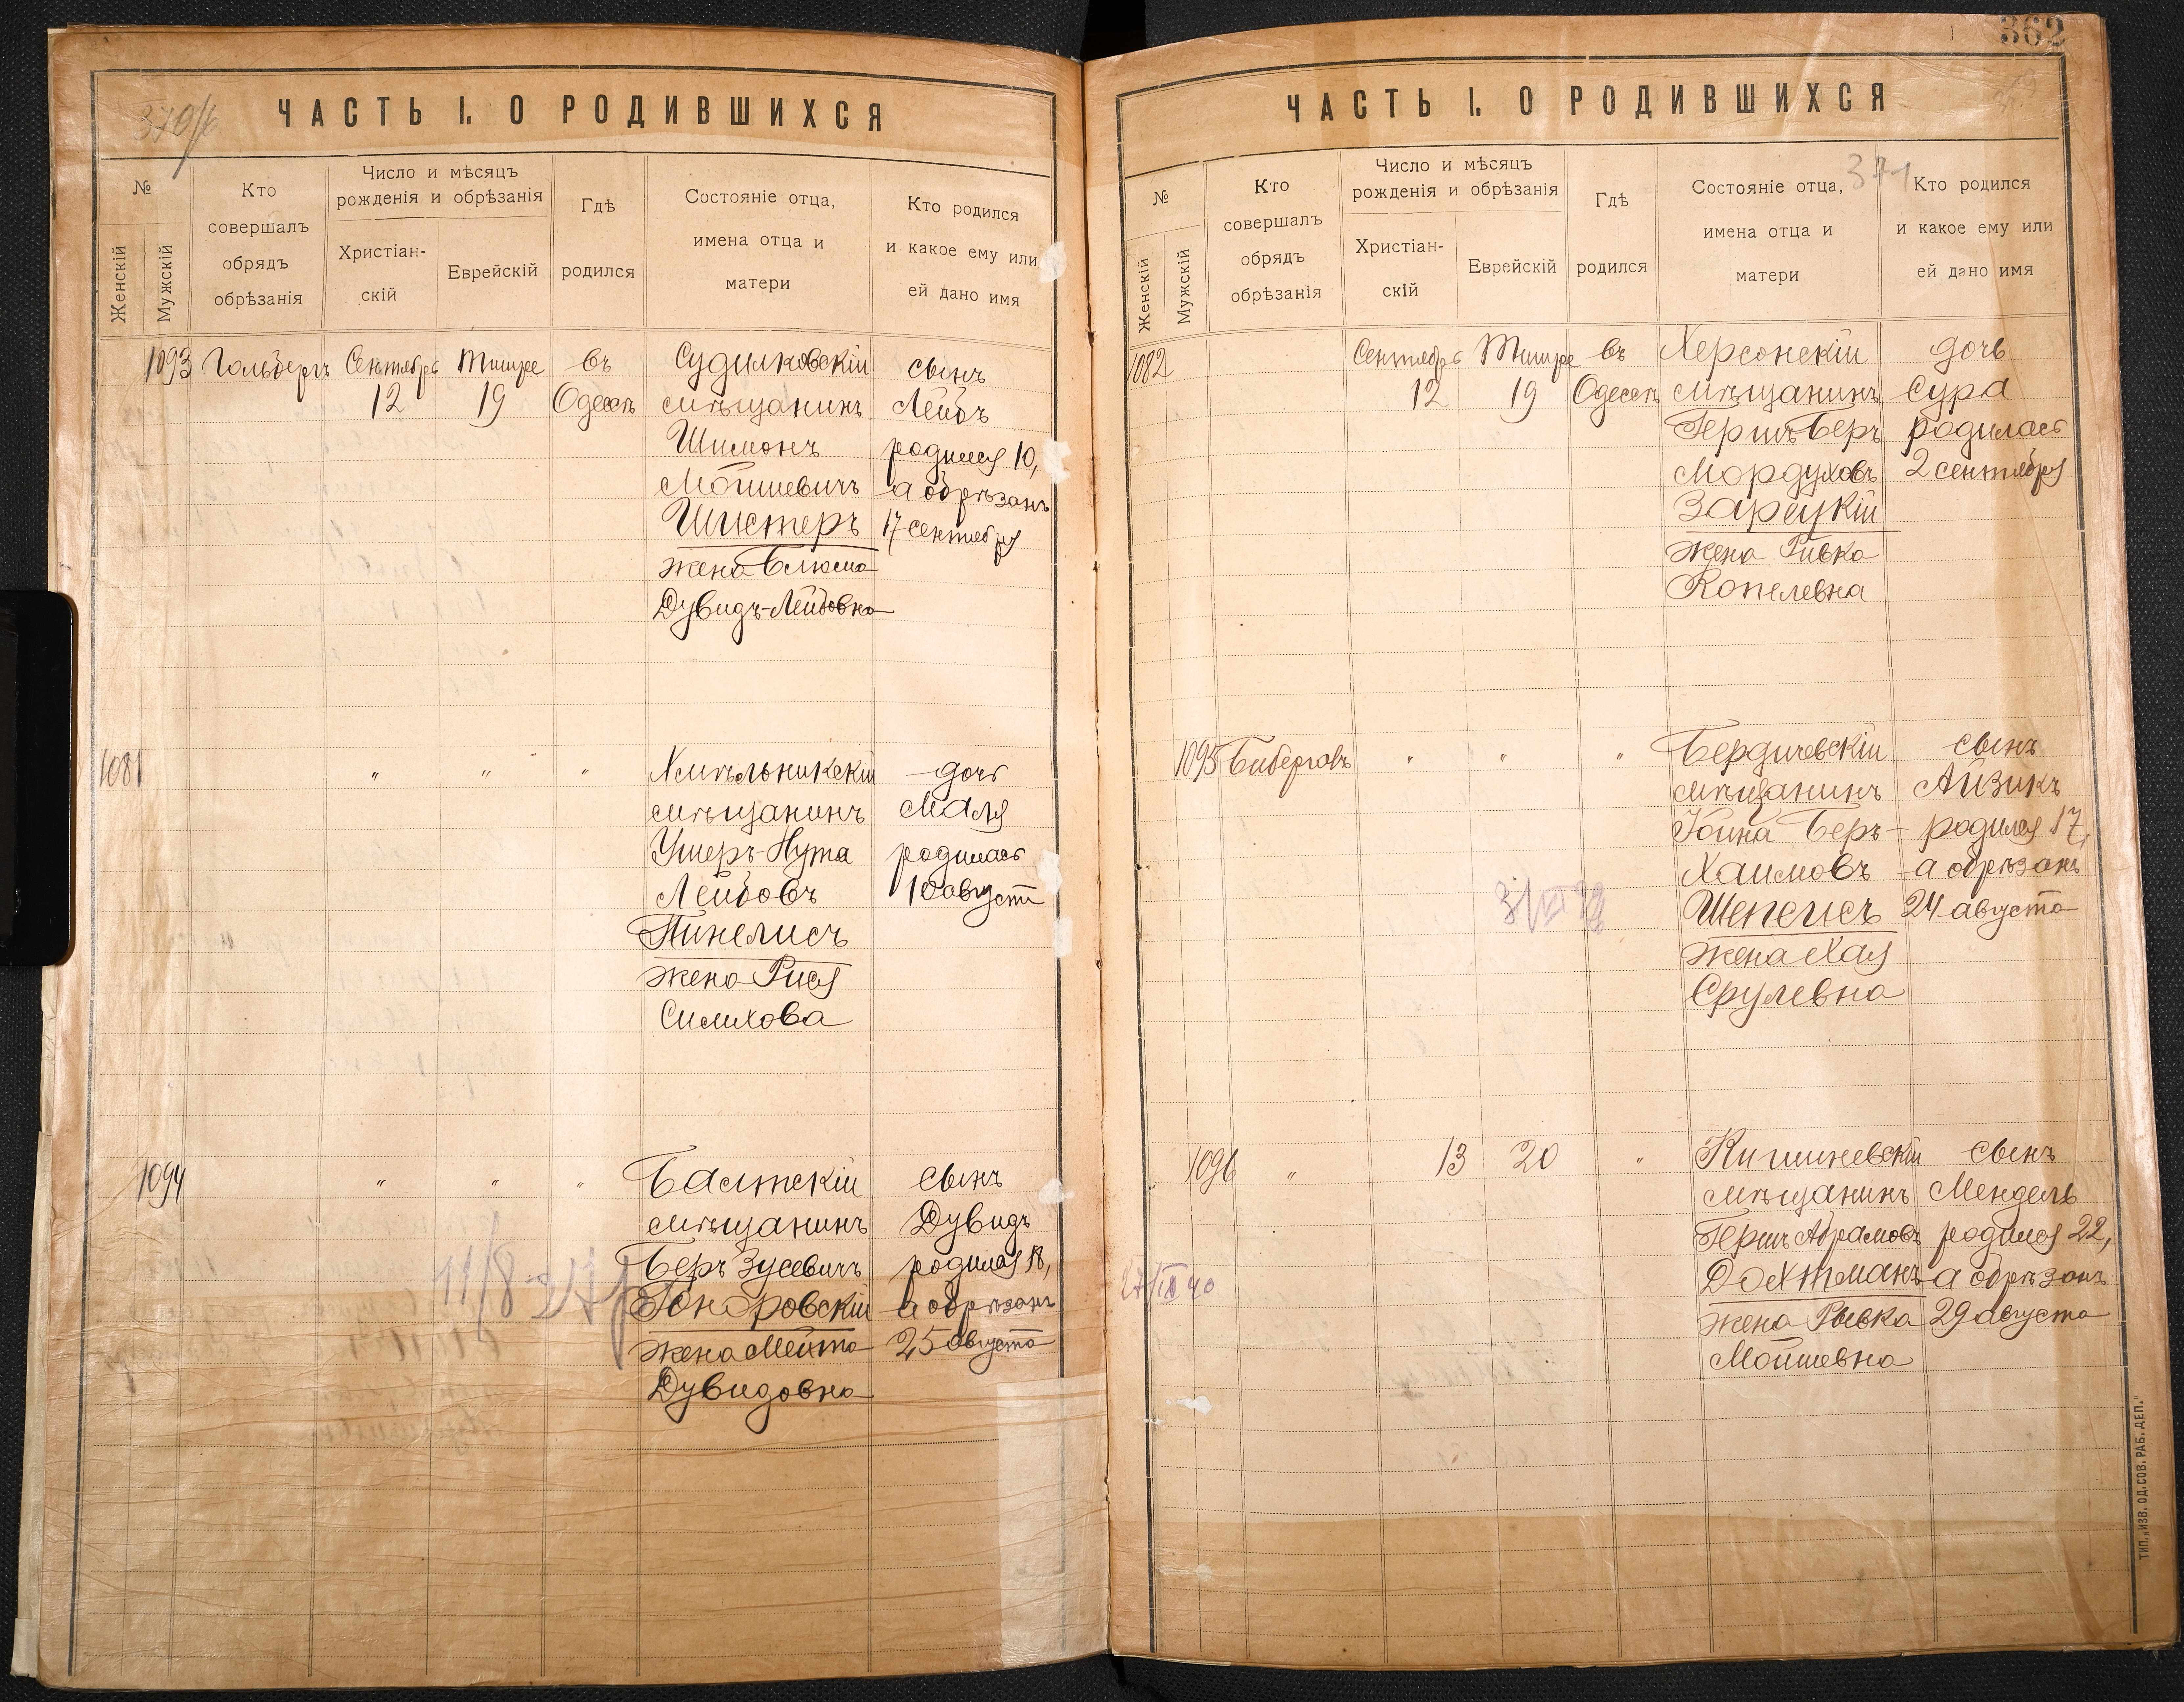 370/б
ЧАСТЬ I. О РОДИВШИХСЯ
№
Женскій
Мужскій
Кто
совершалъ
обрядъ
обрѣзанія
Число и мѣсяцъ
рожденія и обрѣзанія
Христіан-
скій
Еврейскій
Гдѣ
родился
Состояніе отца,
имена отца и
матери
Кто родился
и какое ему или
ей дано имя
1093 Гольбергъ Сентябрь Тишре въ Судилковскій сынъ
12 19 Одессѣ мѣщанинъ Лейбъ
Шимонъ родился 10,
Мойшевичъ а обрѣзанъ
Шистеръ 17 сентября
жена Блюма
Дувидъ-Лейбовна
1081 " " " Хмѣльникскій дочь
мѣщанинъ Маля
Ушеръ-Нута родилась
Лейбовъ 10 августа
Пинелисъ
жена Рися
Симхова
1094 " " " Балтскій сынъ
мѣщанинъ Дувидъ
Беръ Зусевичъ родился 18,
Гоноровскій а обрѣзанъ
жена Мейта 25 августа
Дувидовна
362
ЧАСТЬ I. О РОДИВШИХСЯ
371
№
Женскій
Мужскій
Кто
совершалъ
обрядъ
обрѣзанія
Число и мѣсяцъ
рожденія и обрѣзанія
Христіан-
скій
Еврейскій
Гдѣ
родился
Состояніе отца,
имена отца и
матери
Кто родился
и какое ему или
ей дано имя
1082 Сентябрь Тишре въ Херсонскій дочь
12 19 Одессѣ мѣщанинъ Сура
Гершъ-Беръ родилась
Мордуховъ 2 сентября
Зарецкій
жена Ривка
Копелевна
1095 Биберговъ " " " Бердичевскій сынъ
мѣщанинъ Айзикъ
Іойна Беръ- родился 17,
Хаимовъ а обрѣзанъ
Шепелисъ 24 августа
жена Хая
Срулевна
1096 " 13 20 " Кишиневскій сынъ
мѣщанинъ Мендель
Гершъ Абрамовъ родился 22,
Дохтманъ а обрѣзанъ
жена Рывка 29 августа
Мойшевна
ТИП. „ИЗВ. ОД. СОВ. РАБ. ДЕП."